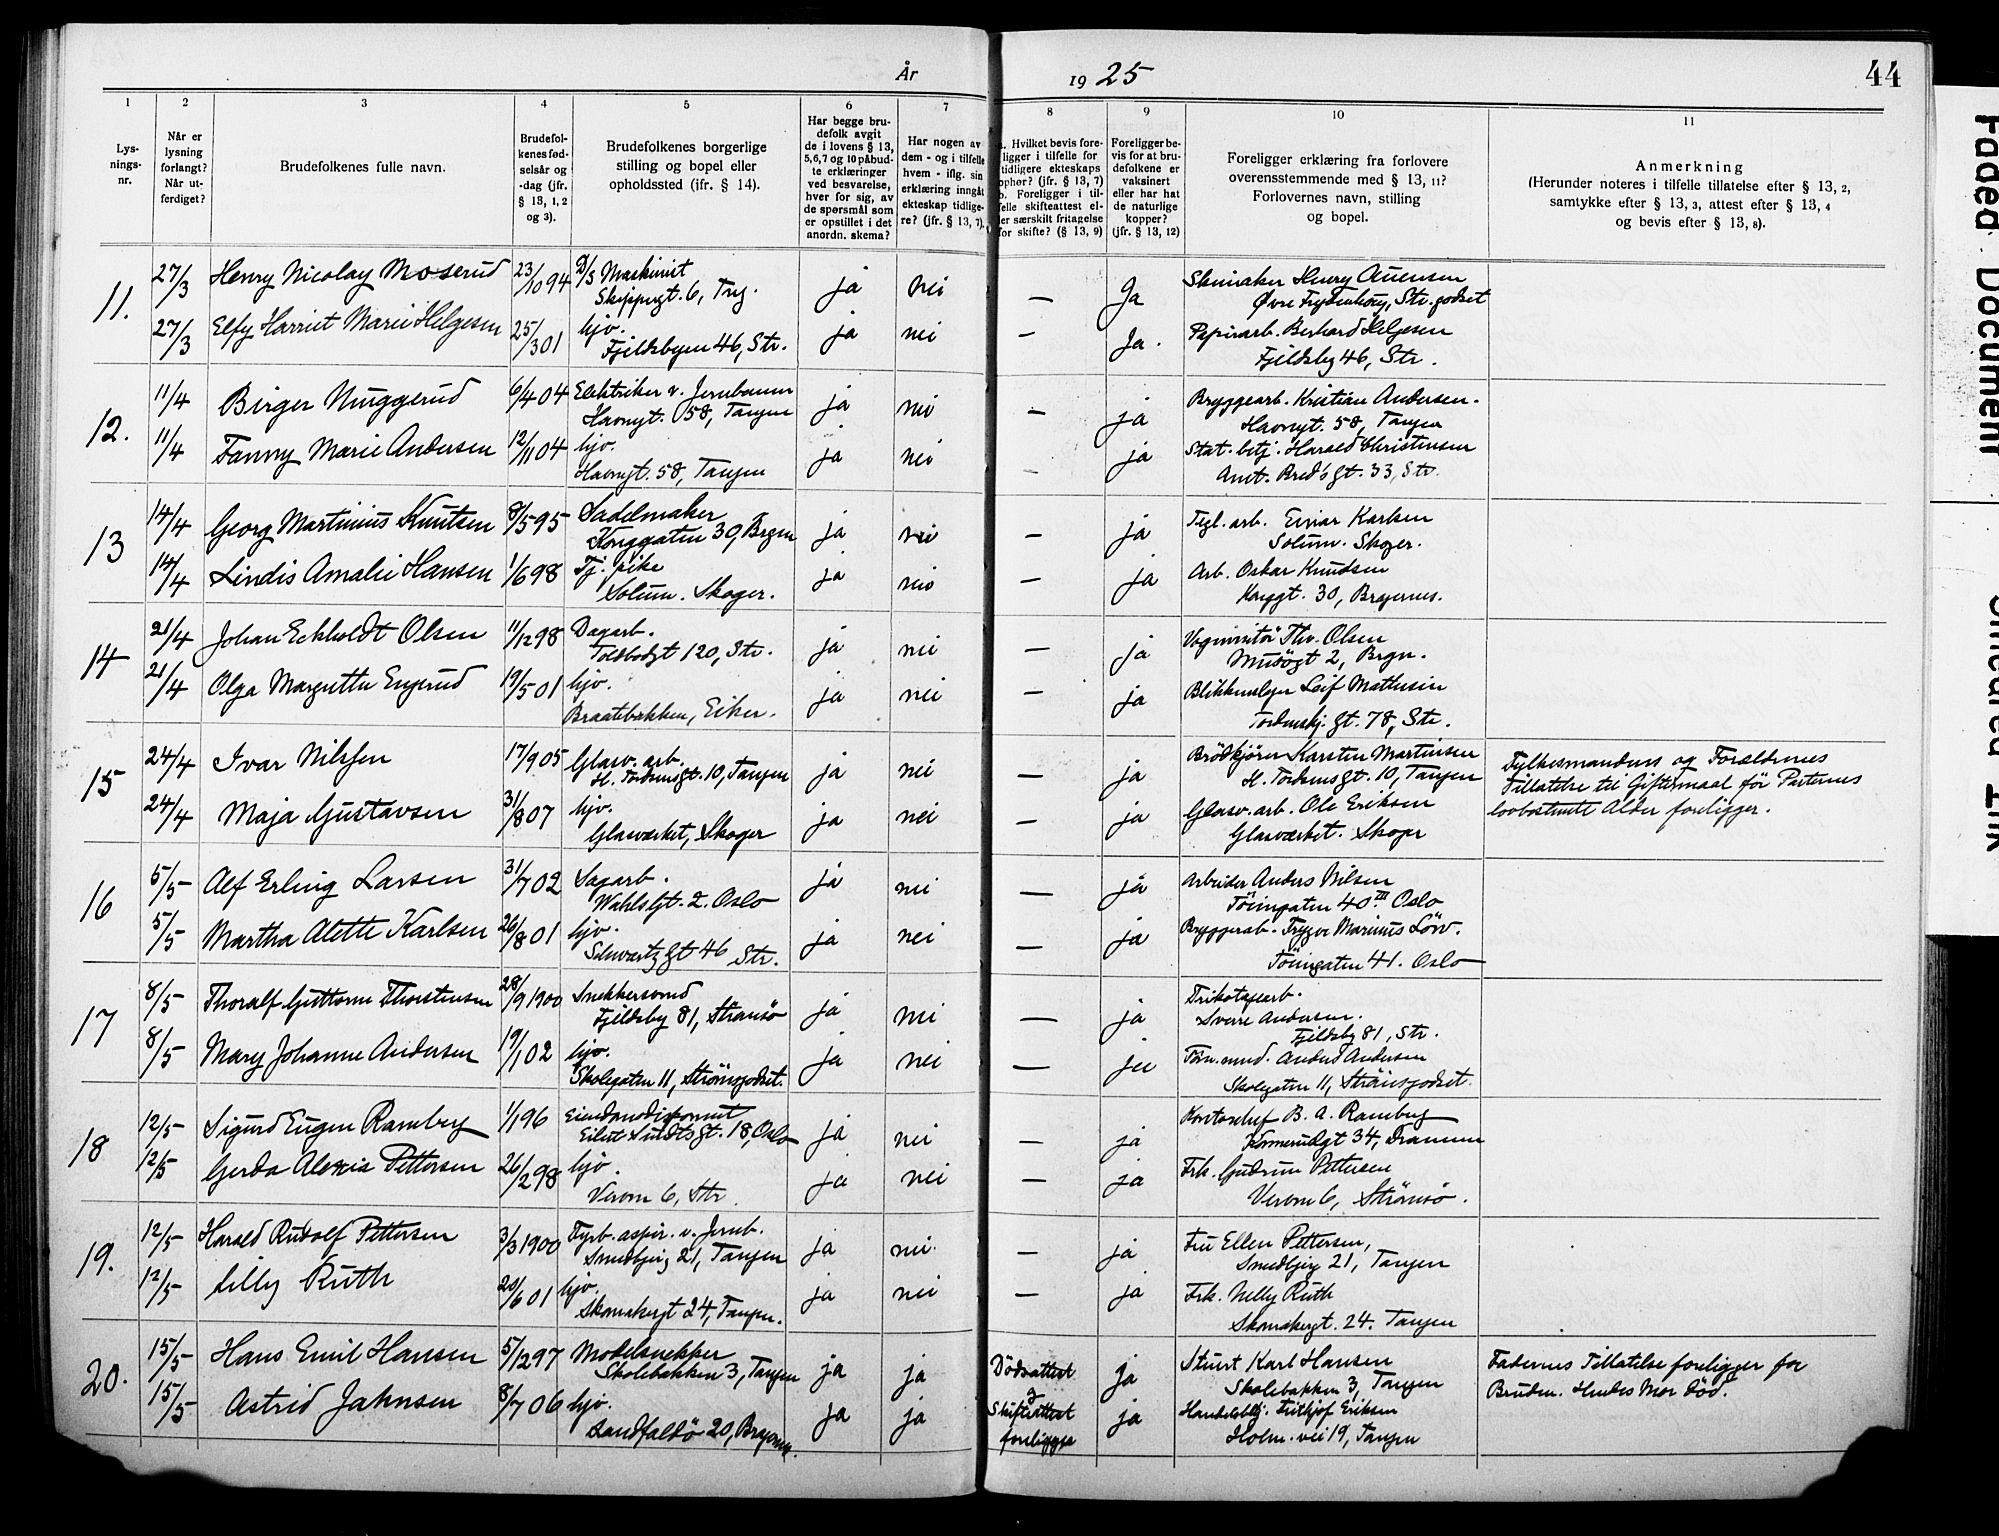 År 1925 44
1 2 3 4 5 6 7 8 9 10 11
Lys-
nings-
nr.
Når er
lysning
forlangt?
Når ut-
ferdiget?
Brudefolkenes fulle navn.
Brudefol-
kenes fød-
selsår og
-dag (jfr.
§ 13, 1, 2
og 3).
Brudefolkenes borgerlige
stilling og bopel eller
opholdssted (ifr. § 14).
Har begge bru-
defolk avgit
de i lovens § 13,
5,6,7 og 10 påbud-
te erklæringer
ved besvarelse,
hver for sig, av
de spørsmål som
er opstillet i det
anordn. skema?
Har nogen av
dem - og i tilfelle
hvem - iflg. sin
erklæring inngått
ekteskap tidlige-
re? (jfr. § 13, 7).
a. Hvilket bevis fore-
ligger i tilfelle for
tidligere ekteskaps
ophør? (jfr. § 13, 7)
b. Foreligger i til-
felle skifteattest el-
ler særskilt fritagelse
for skifte? (§ 13, 9)
Foreligger be-
vis for at bru-
defolkene er
vaksinert
eller har hat
de naturlige
kopper?
(jfr. § 13, 12)
Foreligger erklæring fra forlovere
overensstemmende med § 13, 11?
Forlovernes navn, stilling
og bopel.
Anmerkning
(Herunder noteres i tilfelle tillatelse efter § 13, 2,
samtykke efter § 13, 3, attest efter § 13, 4
og bevis efter § 13, 8).
11.
27/3 Henry Nicolay Moserud 23/10 94 D/S Maskinist ja nei — Ja Skomaker Henry
Skippergt. 6, Tng. Øvre Frydenberg, Str. godset
27/3 Elfy Harriet Marie Helgesen 25/3 01 hjv. ja nei — Ja. Papirarb. Berhard Helgesen
Fjeldsbyen 46, Str. Fjeldsby 46, Str.
12.
11/4 Birger Muggerud 6/4 04 Elektriker v. Jernbanen ja nei — ja Bryggearb. Kristian Andersen.
Havnegt. 58, Tangen Havnegt. 58, Tangen
11/4 Fanny Marie Andersen 12/11 04 hjv. ja nei — ja Stat. betj. Harald Christensen
Havnegt. 58, Tangen Amt. Bred's gt. 33, Str.
13
14/4 Georg Martinius Knutsen 8/5 95 Sadelmaker ja nei — ja Tegl. arb. Einar Karlsen
Konggaten 30, Brgn Solum. Skoger.
14/4 Lindis Amalie Hansen 1/6 98 Tj. pike ja nei — ja Arb. Oskar Knudsen
Solum. Skoger. Konggt. 30, Bragernes.
14
21/4 Johan Eckholdt Olsen 11/12 98 Dagarb. ja nei — ja Vognvisitør Thv. Olsen
Toldbodgt 120, Str. Musögt 2, Brgn.
21/4 Olga Margrethe Engerud 19/5 01 hjv. ja nei — ja Blikkenslager Leif Mathisen
Braatebakken, Eiker. Tordenskj. gt. 78, Str.
15
24/4 Ivar Nilssen 17/9 05 Glasv. arb. ja nei — ja Brödkjörer Karsten Martinsen Fylkesmandens og Foreldrenes
H. Tordensgt. 10, Tangen H. Tordensgt. 10, Tangen Tillatelse til Giftermaal för Parternes
24/4 Maja Gustavsen 31/8 07 hjv. ja nei — ja Glasv. arb. Ole Eriksen lovbestemte Alder foreligger.
Glasværket, Skoger Glasværket. Skoger
16
5/5 Alf Erling Larsen 31/7 02 Sagarb. ja nei — ja Arbeider Anders Nilsen
Wahlsgt. 2. Oslo Töiengaten 40 III Oslo
5/5 Martha Alette Karlsen 26/8 01 hjv. ja nei — ja Bryggerarb. Trygve Marinus Löw.
Schwartz gt 46 Str. Töiengaten 41. Oslo
17
8/5 Thoralf Guttorm Thorstensen 28/9 1900 Snekkersvend ja nei — ja Trikotagearb.
Fjeldsby 81, Strömsö Sverre Andersen.
Fjeldsby 81, Str.
8/5 Mary Johanne Andersen 19/1 02 hjv. ja nei — ja Töm. mend. Anders Andersen
Skolegaten 11, Strömsgodset. Skolegaten 11, Strömsgodset.
18
12/5 Sigurd Eugen Ramberg 1/1 96 Eiendomsdisponent ja nei — ja Kontorchef B. A. Ramberg
Eilert Sundts gt. 18, Oslo Konnerudgt 34, Drammen
12/5 Gerda Alexia Pettersen 26/2 98 hjv. ja nei — ja Frk. Gudrun Pettersen
Vervn 6, Str. Vervn 6, Strömsö.
19.
12/5 Harald Rudolf Pettersen 3/3 1900 Fyrb. aspir. v. Jernb. ja nei. — ja Fru Ellen Pettersen,
Smedbjerg 21, Tangen Smedbjerg 21, Tangen
12/5 Lilly Ruth 20/6 01 hjv. ja nei — ja Frk. Nelly Ruth
Skomakergt 24, Tangen. Skomakergt. 24. Tangen
20.
15/5 Hans Emil Hansen 5/12 97 Modelsnekker ja ja Dödsattest ja Stuert Karl Hansen Faderens Tillatelse foreligger for
Skolebakken 3, Tangen & Skolebakken 3, Tangen Bruden. Hendes Mor död.
15/5 Astrid Jahnsen 8/7 06 hjv. ja ja Skifteattest ja Handelsbetj. Fritjof Eriksen
Landfaldö 20, Bragernes. foreligger Holm. vei 19, Tangen
Faded Document